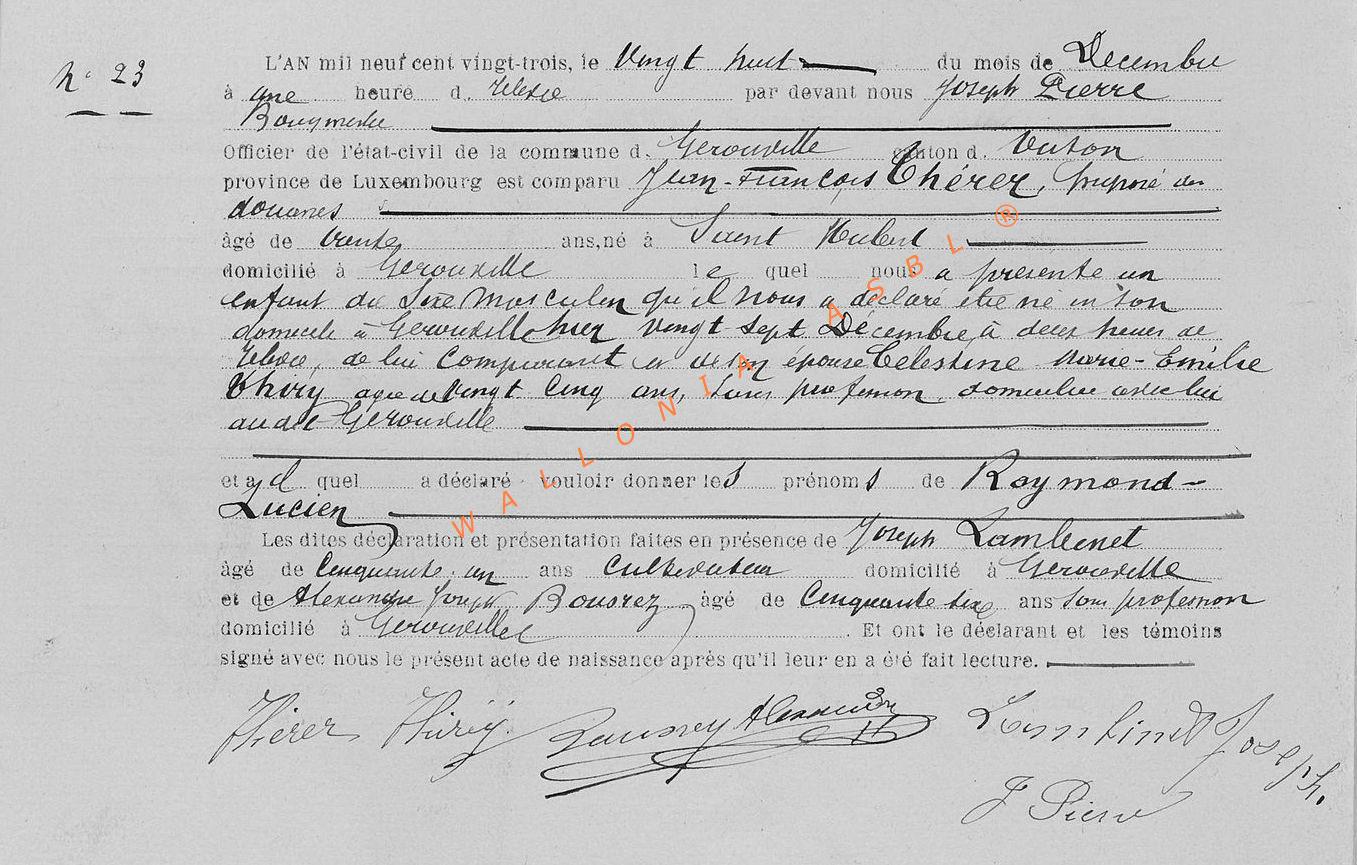 N° 23
L'AN mil neuf cent vingt-trois, le Vingt huit du mois de Décembre
à une heure d. relevée par devant nous Joseph Pierre
Bourgmestre
Officier de l'état-civil de la commune d. Gérouville canton d. Virton
province de Luxembourg est comparu Jean-François Thérer, préposé des
douanes
âgé de trente ans, né à Saint Hubert
domicilié à Gérouville le quel nous a présenté un
enfant du sexe masculin qu'il nous a déclaré être né en son
domicile à Gérouville hier vingt sept Décembre à deux heures de
relevée, de lui comparant et de son épouse Célestine Marie-Emilie
Thiry agée de vingt cinq ans, sans profession, domiciliée avec lui
au dit Gérouville
et au quel a déclaré vouloir donner les prénoms de Raymond-
Lucien
Les dites déclaration et présentation faites en présence de Joseph Lambinet
âgé de cinquante un ans cultivateur domicilié à Gérouville
et de Alexandre Joseph Bourez âgé de cinquante six ans sans profession
domicilié à Gérouville. Et ont le déclarant et les témoins
signé avec nous le présent acte de naissance après qu'il leur en a été fait lecture.
Thérer Thiry Alexandre Lambinet Joseph.
J Pierre
WALLONIA ASBL ®